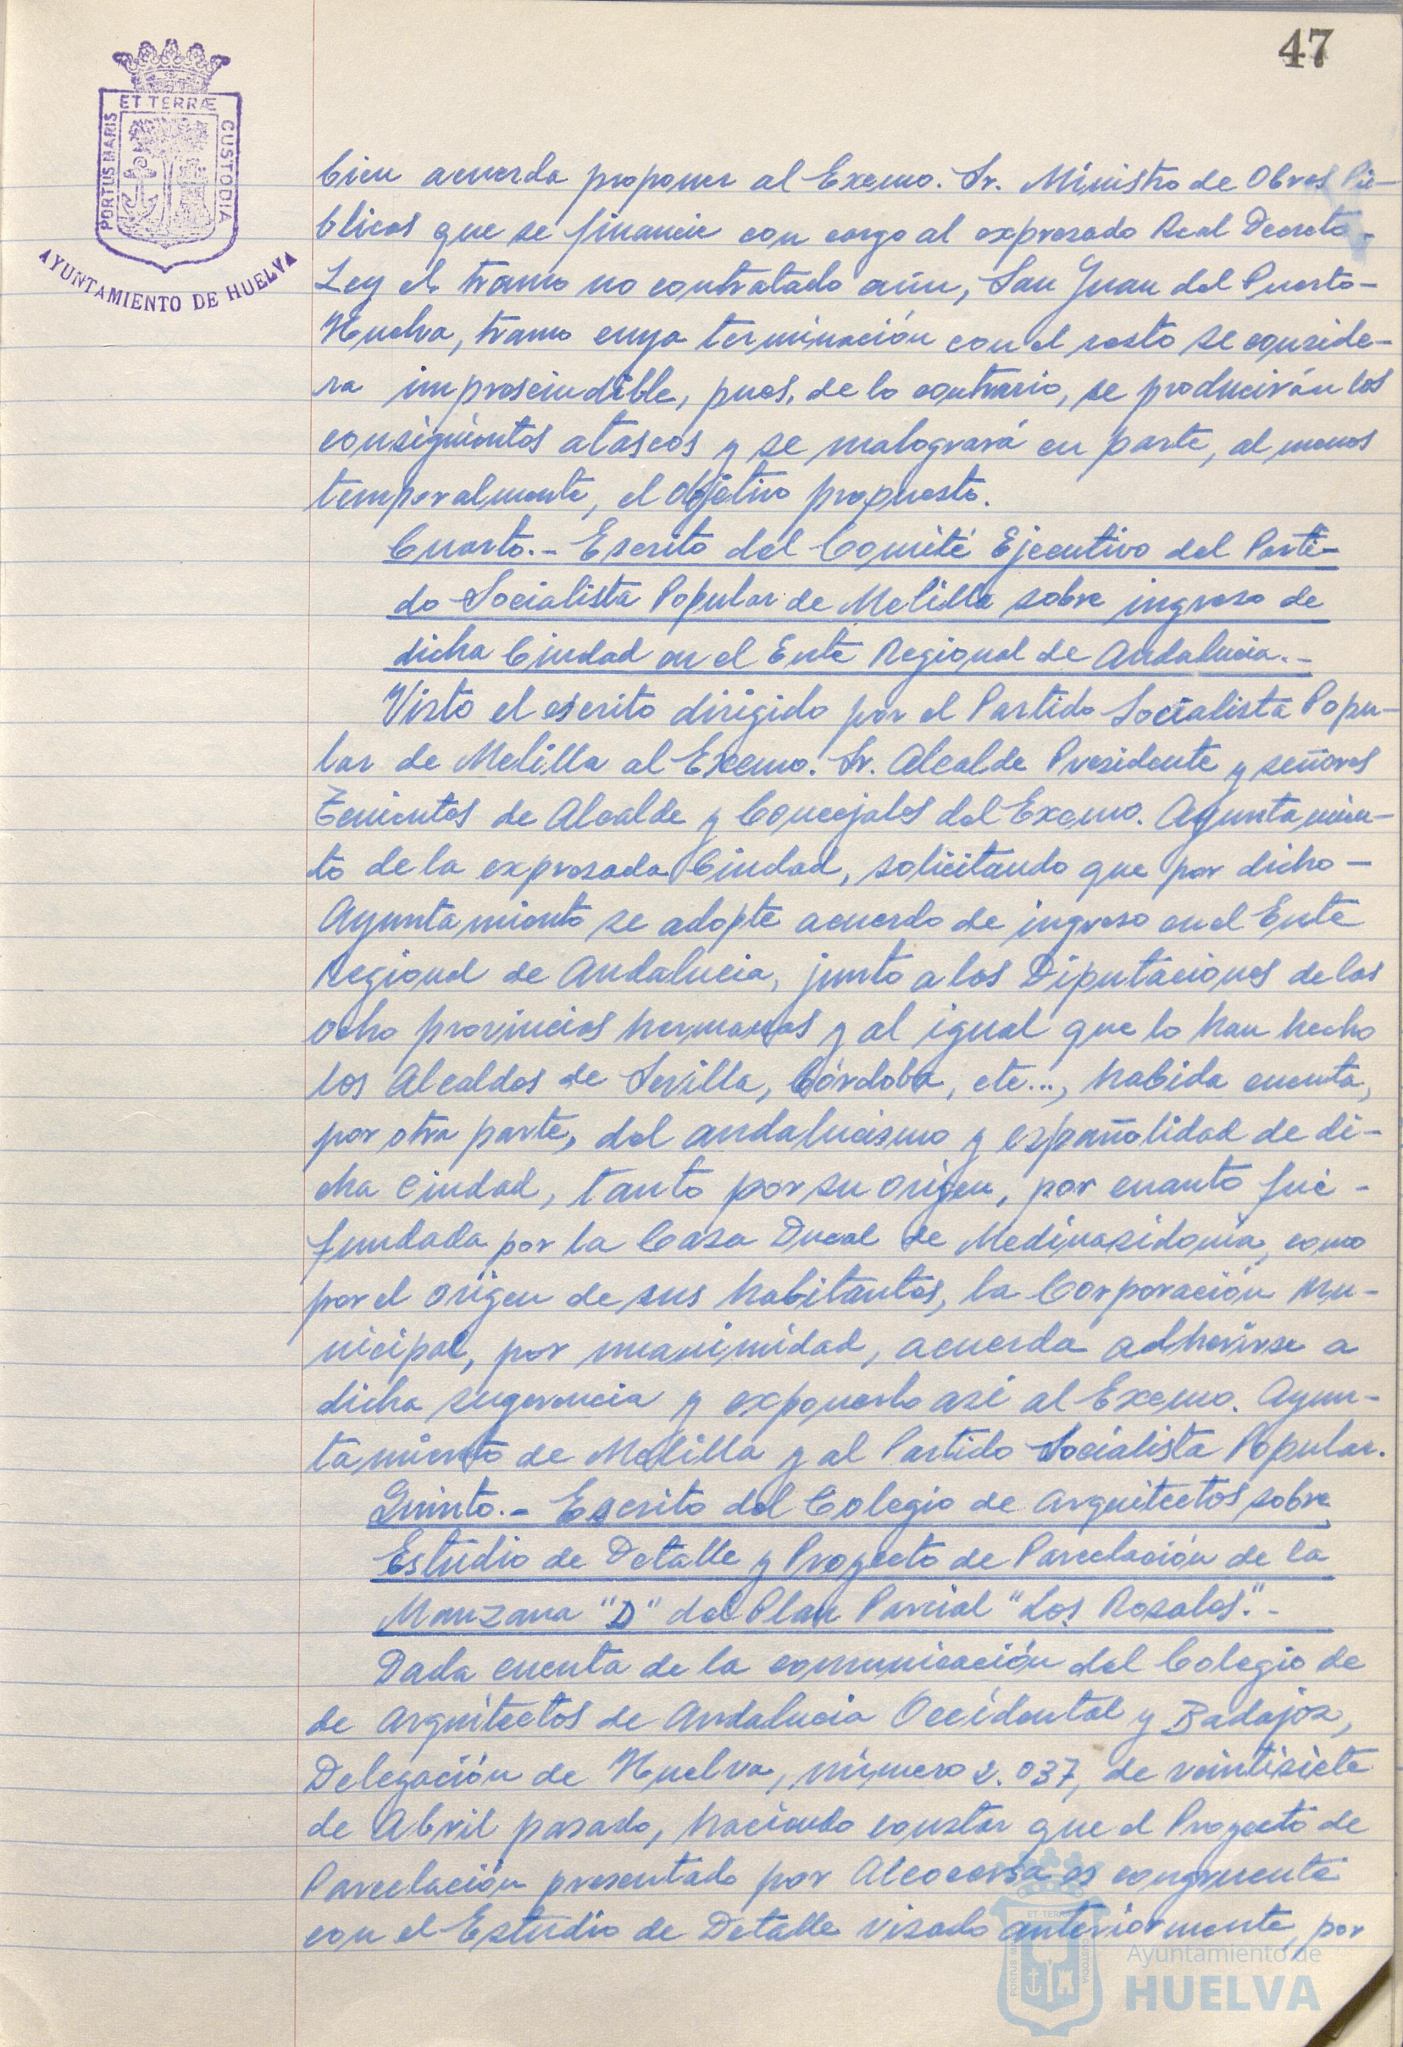 47
ET TERRÆ
PORTUS MARIS
CUSTODIA
AYUNTAMIENTO DE HUELVA
bien acuerda proponer al Excmo. Sr. Ministro de Obras Pú-
blicas que se financie con cargo al expresado Real Decreto-
Ley el tramo no contratado aún, San Juan del Puerto-
Huelva, tramo cuya terminación con el resto se conside-
ra imprescindible, pues, de lo contrario, se producirán los
consiguientes atascos y se malogrará en parte, al menos
temporalmente, el objetivo propuesto.
Cuarto.- Escrito del Comité Ejecutivo del Parti-
do Socialista Popular de Melilla sobre ingreso de
dicha Ciudad en el Ente Regional de Andalucia.-
Visto el escrito dirigido por el Partido Socialista Popu-
lar de Melilla al Excmo. Sr. Alcalde Presidente y señores
Tenientes de Alcalde y Concejales del Excmo. Ayuntamien-
to de la expresada Ciudad, solicitando que por dicho-
Ayuntamiento se adopte acuerdo de ingreso en el Ente
Regional de Andalucia, junto a las Diputaciones de las
ocho provincias hermanas y al igual que lo han hecho
los Alcaldes de Sevilla, Córdoba, etc..., habida cuenta,
por otra parte, del andalucismo y españolidad de di-
cha ciudad, tanto por su origen, por cuanto fué-
fundada por la Casa Ducal de Medinasidonia, como
por el origen de sus habitantes, la Corporación Mu-
nicipal, por unanimidad, acuerda adherirse a
dicha sugerencia y exponerlo así al Excmo. Ayun-
tamiento de Melilla y al Partido Socialista Popular.
Quinto.- Escrito del Colegio de Arquitectos sobre
Estudio de Detalle y Proyecto de Parcelación de la
Manzana "D" del Plan Parcial "Los Rosales".-
Dada cuenta de la comunicación del Colegio de
de Arquitectos de Andalucia Occidental y Badajoz,
Delegación de Huelva, número 2.037, de veintisiete
de Abril pasado, haciendo constar que el Proyecto de
Parcelación presentado por Alcocersa es congruente
con el Estudio de Detalle visado anteriormente, por
Ayuntamiento de
HUELVA